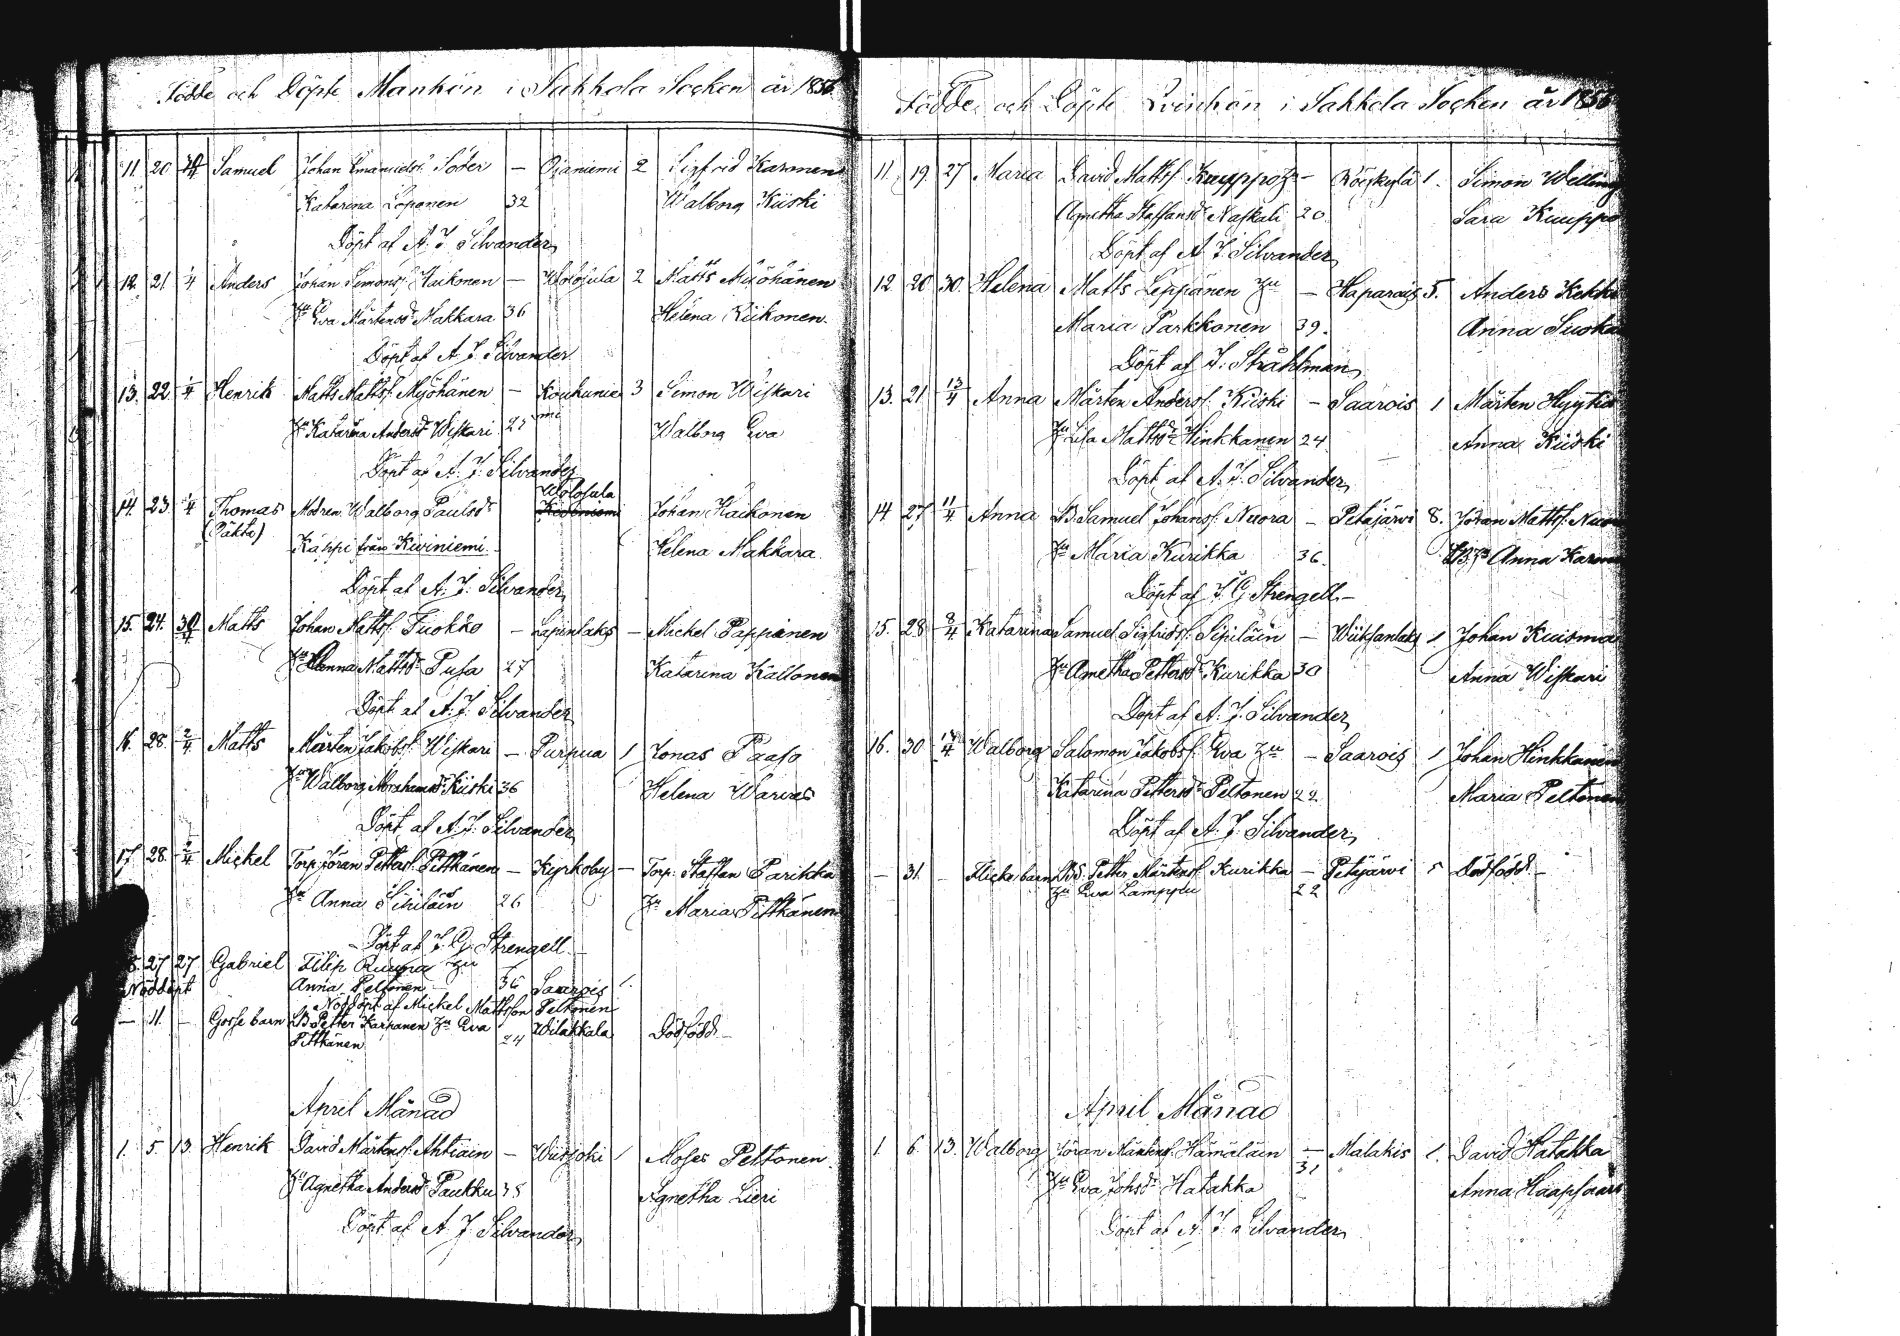 Födde och Döpte Mankön i Sakkola Socken år 1856.
11. 20 Samuel Johan Emanuelss. Söder — Ojaniemi 2 Sigfrid Karonen
Katarina Loponen 32 Walborg Kiiski
Döpt af A. J. Silvander
12. 21. 1/4 Anders Johan Simonss. Haikonen — Wolojula 2 Matts Myöhänen
Hu Eva Mårtensdr Makkara 36 Helena Riikonen.
Döpt af A. J. Silvander
13. 22. 1/4 Henrik Matts Mattss. Myöhänen — Koukunie 3 Simon Wiskari
mi
Hu Katarina Andersdr Wiskari 25 Walborg Eva
Döpt af A. J. Silvander
Wolojula
14. 23. 1/4 Thomas Modren Walborg Paulsdr Johan Haikonen
(oäkta) Käppi från Kiviniemi. Helena Makkara
Döpt af A. J. Silvander
15. 24. 30 Matts Johan Mattss. Fuokko — Lapinlaks — Mickel Pappinen
Hu Anna Mattsdr Pusa 27 Katarina Kallonen
Döpt af A. J. Silvander
16. 28. 2/4 Matts Mårten Jakobss. Wiskari — Purpua 1 Jonas Paaso
Hu Walborg Abrahamsdr Kiiski 36 Helena Warvas
Döpt af A. J. Silvander
17. 28. 2/4 Mickel Torp. Jöran Petterss. Pitkänen — Kyrkoby — Torp. Staffan Parikka
Hu Anna Sipiläin 26 Hu Maria Pitkänen
Döpt af J. G. Strengell.
27 27 Gabriel Filip Ruuna Hu
Nöddöpt Anna Peltonen 36 Saarois 1.
Nöddöpt af Mickel Mattsson Peltonen
— 11. — Gosse barn Petter Karpanen Hu Eva Wilakkala Dödfödd.—
Pitkänen 24
April Månad
1. 5. 13. Henrik David Mårtenss. Ahtiain — Wiisjoki 1 Moses Peltonen.
Hu Agnetha Andersdr Paukku 35 Agnetha Lieri
Döpt af A. J. Silvander
Födde och Döpte Qvinkön i Sakkola Socken år 1856
11. 19. 27 Maria David Mattss. Kuuppo Hu — Röiskylä 1. Simon Welling
Agnetha Staffansdr Naskali 20. Sara Kuuppo
Döpt af A. J. Silvander
12 20 30. Helena Matts Leppänen Hu — Haparais 5. Anders Kekki
Maria Parkkonen 39. Anna
Döpt af J. Stråhlman
13. 21. 13/4 Anna Mårten Anderss. Kiiski — Saarois 1 Mårten Hyytiä
Hu Lisa Mattsdr Hinkkanen 24. Anna Kiiski
Döpt af A. J. Silvander
14 27 11/4 Anna Samuel Johanss. Nuora — Petäjärvi 8. Jöran Mattss.
Hu Maria Kurikka 36. Anna
Döpt af J. G. Strengell.—
15. 28 8/4 Katarina Samuel Sigfridss. Sipiläin — Wiiksanlaks 1 Johan Kuisma
Hu Agnetha Pettersdr Kurikka 30 Anna Wiskari
Döpt af A. J. Silvander
16. 30 Walborg Salomon Jakobss. Eva Hu — Saarois 1 Johan Hinkkanen
Katarina Pettersdr Peltonen 22. Maria Peltonen
Döpt af A. J. Silvander
— 31. — Flicke barn Petter Mårtenss. Kurikka — Petäjärvi 5 Dödfödd.—
Hu Eva Lamppu 22
April Månad
1. 6. 13. Walborg Jöran Mårtenss. Hämäläin — Malakis 1. David Hatakka
31
Hu Eva Johsdr Hatakka Anna Haapsaari
Döpt af A. J. Silvander